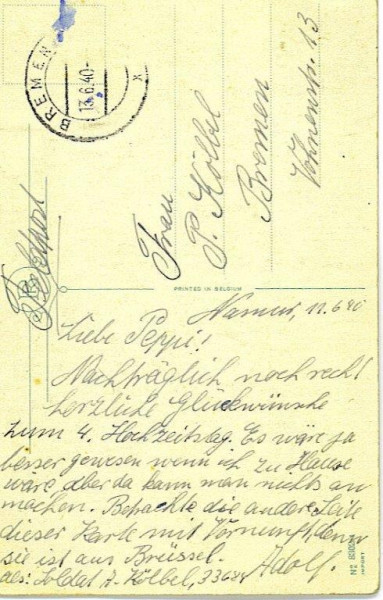 BREMEN
13.6.40-
x
Feldpost
Frau
P. Kölbel
Bremen
Vohnenstr. 13
PRINTED IN BELGIUM
Namur, 11.6.40
Liebe Peppi!
Nachträglich noch recht
herzliche Glückwünsche
zum 4. Hochzeitstag. Es wäre ja
besser gewesen wenn ich zu Hause
wäre, aber da kann man nichts an
machen. Betrachte die andere Seite
dieser Karte mit Vernunft, denn
sie ist aus Brüssel.
Adolf.
als: Soldat A. Kölbel, 33684
IMPORT